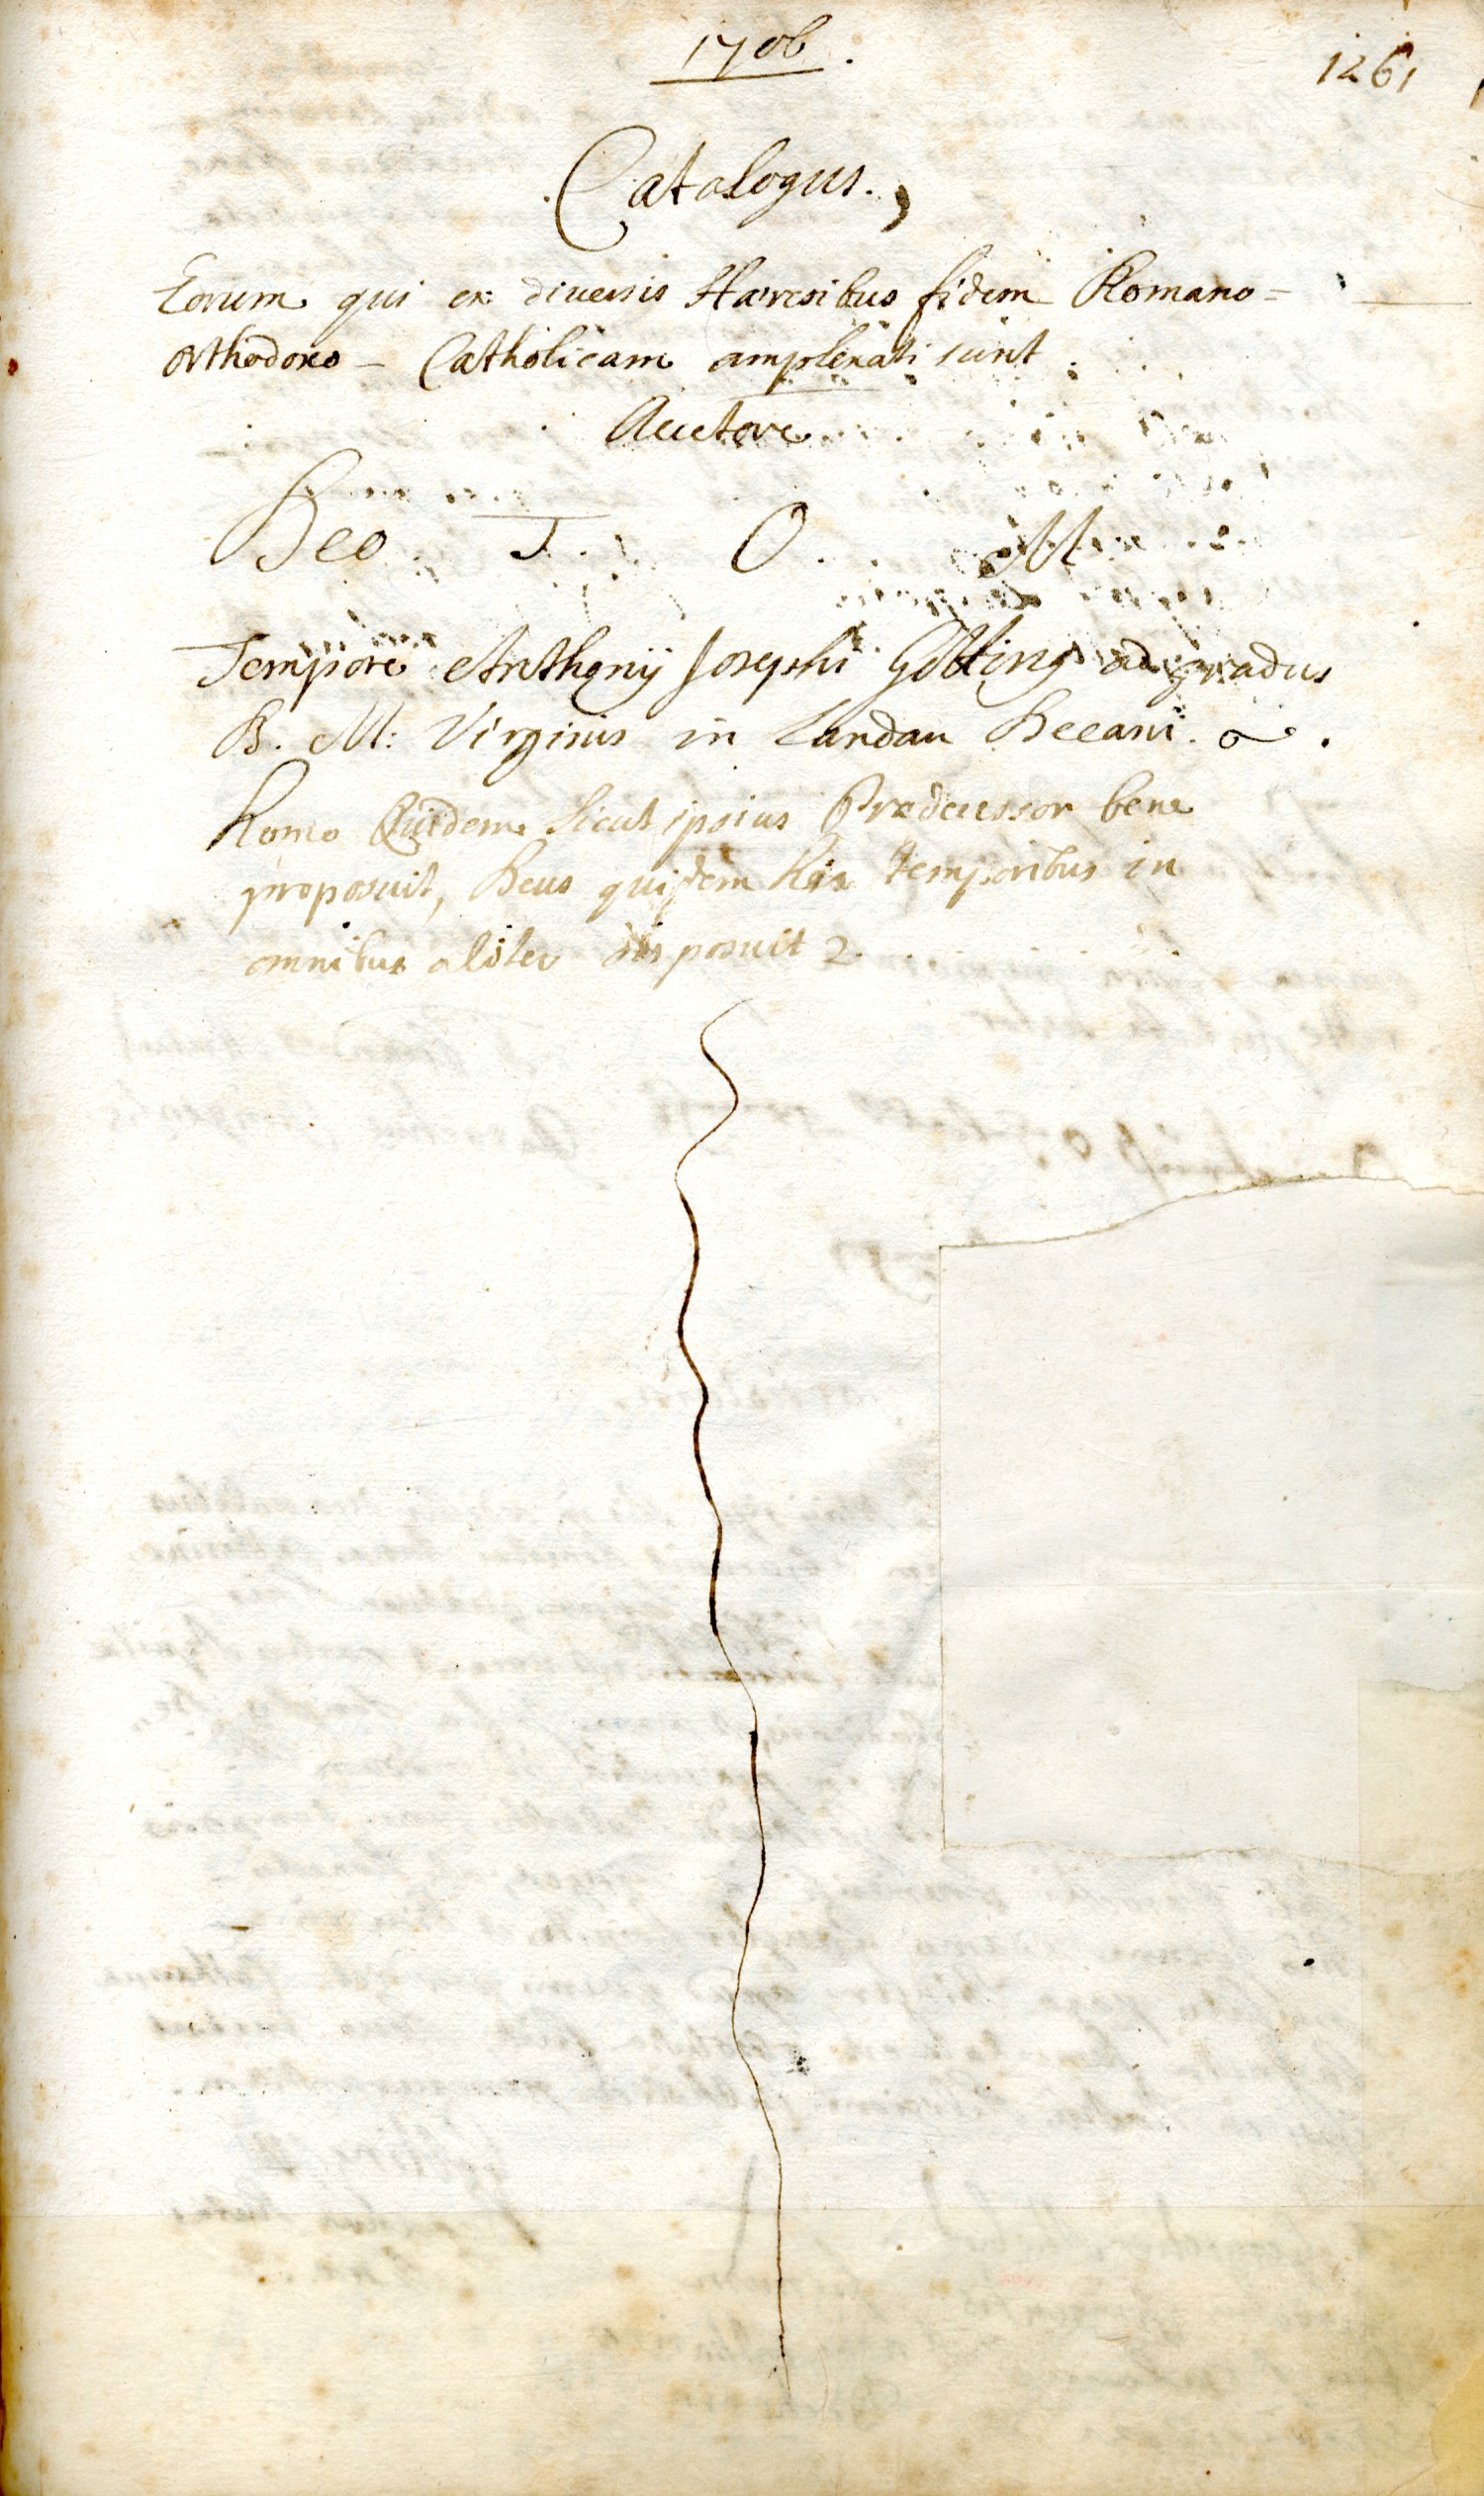 1706.
1261
Catalogus.,
Eorum qui ex diversis Haeresibus fidem Romano=
orthodoxo - Catholicam amplexati sunt.
Auctore
Deo. T. O. M
Tempore Anthonÿ Josephi Götting ad gradus
B. M: Virginis in Landau Decani.
Homo Quidem Sicut ipsius Praedecessor bene
proposuit, Deus quidem his temporibus in
omnibus aliter disposuit